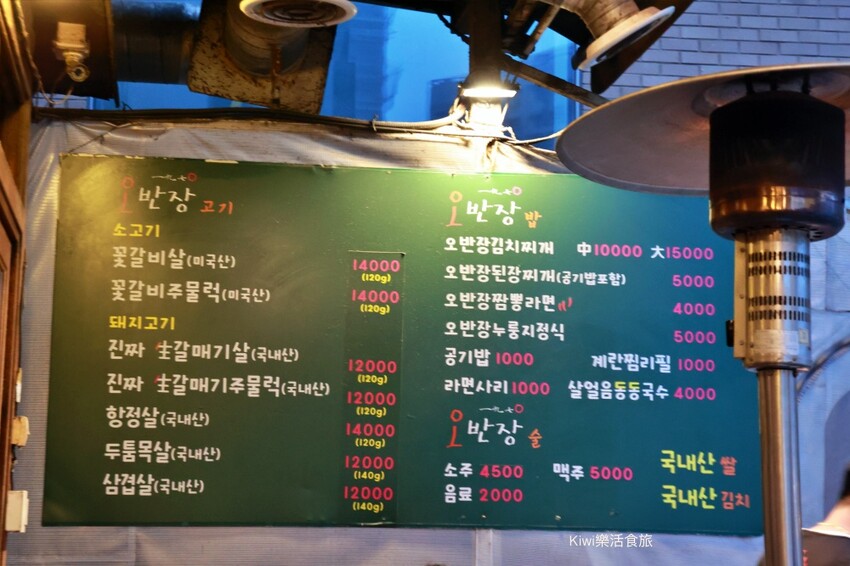 오반장 고기
소고기
꽃갈비살(미국산) 14000 (120g)
꽃갈비주물럭(미국산) 14000 (120g)
돼지고기
진짜 生갈매기살(국내산) 12000 (120g)
진짜 生갈매기주물럭(국내산) 12000 (120g)
항정살(국내산) 14000 (120g)
두툼목살(국내산) 12000 (140g)
삼겹살(국내산) 12000 (140g)
오반장 밥
오반장김치찌개 中10000 大15000
오반장된장찌개(공기밥포함) 5000
오반장짬뽕라면 4000
오반장누룽지정식 5000
공기밥 1000 계란찜리필 1000
라면사리 1000 살얼음동동국수 4000
오반장 술
소주 4500 맥주 5000
음료 2000
국내산 쌀
국내산 김치
Kiwi樂活食旅